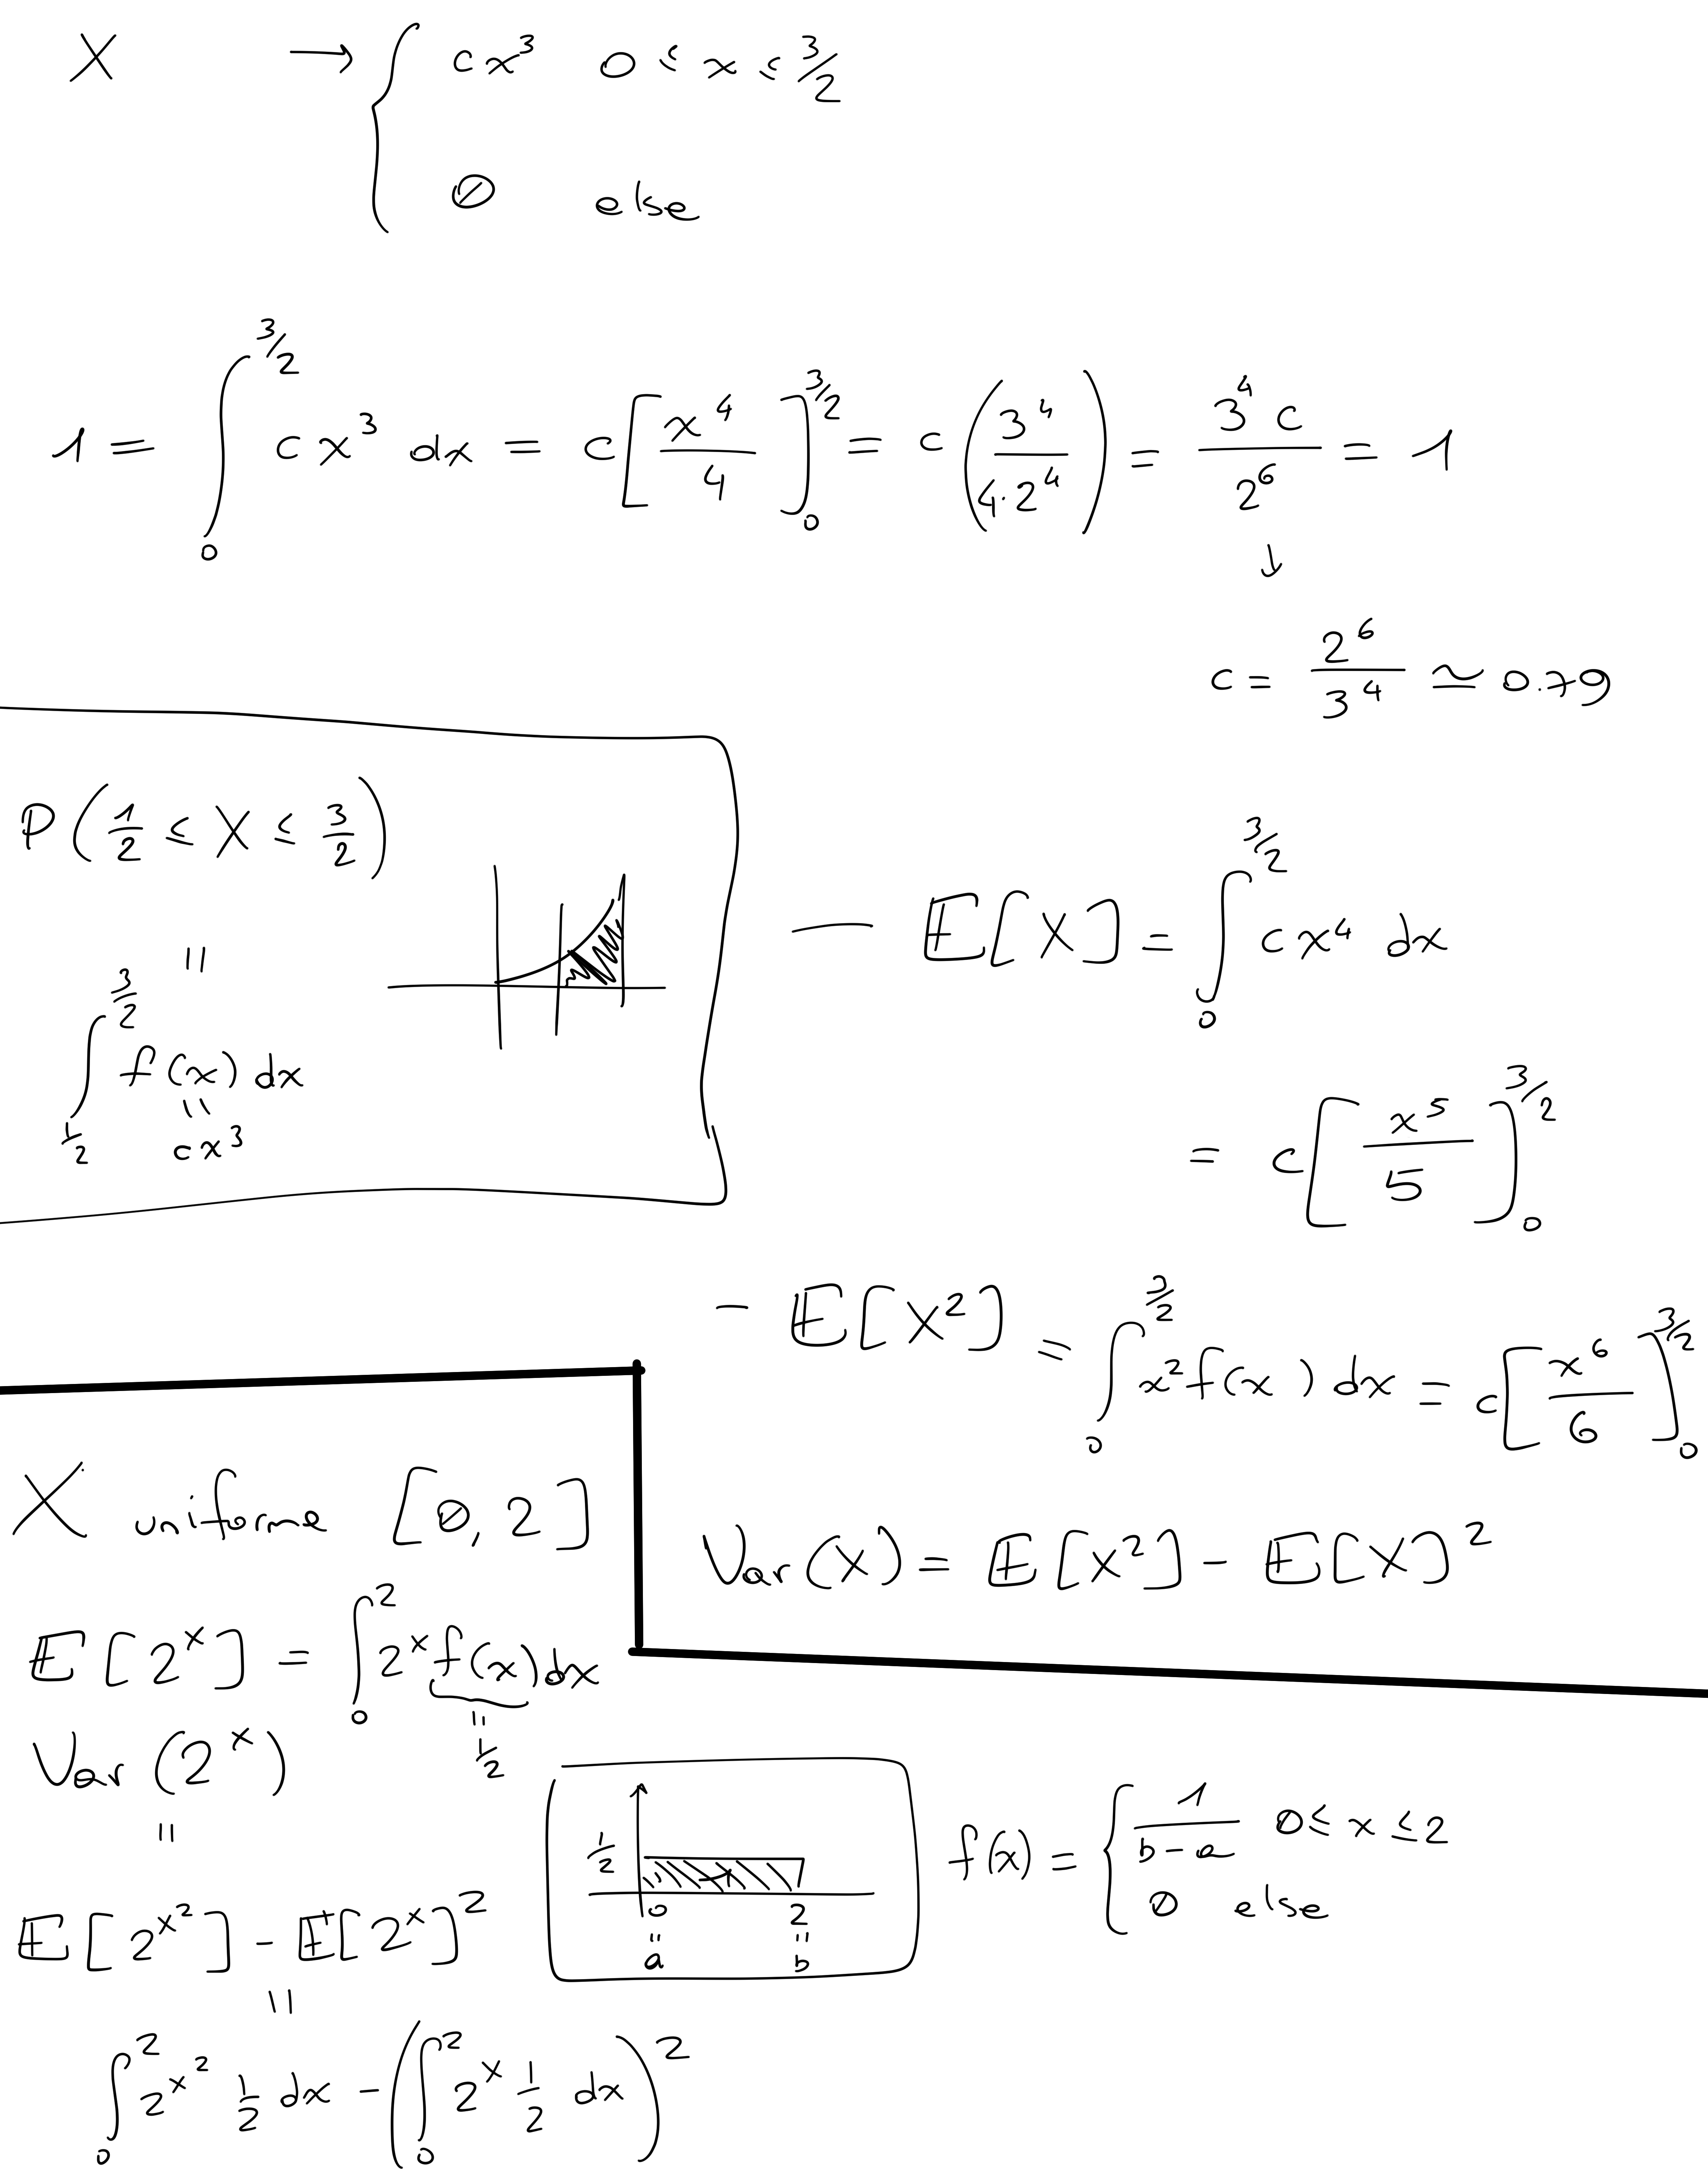 X → { cx³ 0 ≤ x ≤ 3/2
∅ else
1 = ∫₀^{3/2} c x³ dx = c [x⁴/4]₀^{3/2} = c (3⁴/(4·2⁴)) = 3⁴c/2⁶ = 1
↓
c = 2⁶/3⁴ ≃ 0.79
P(1/2 ≤ X ≤ 3/2)
=
∫_{1/2}^{3/2} f(x) dx
=
cx³
— E[X] = ∫₀^{3/2} c x⁴ dx
= c [x⁵/5]₀^{3/2}
– E[X²] = ∫₀^{3/2} x² f(x) dx = c [x⁶/6]₀^{3/2}
Var(X) = E[X²] – E[X]²
X uniforme [∅, 2]
E[2^x] = ∫₀² 2^x f(x) dx
= 1/2
Var(2^x)
=
E[2^{x²}] – E[2^x]²
=
∫₀² 2^{x²} 1/2 dx – (∫₀² 2^x 1/2 dx)²
1/2 1
0 2
= =
a b
f(x) = { 1/(b–a) ∅ ≤ x ≤ 2
∅ else